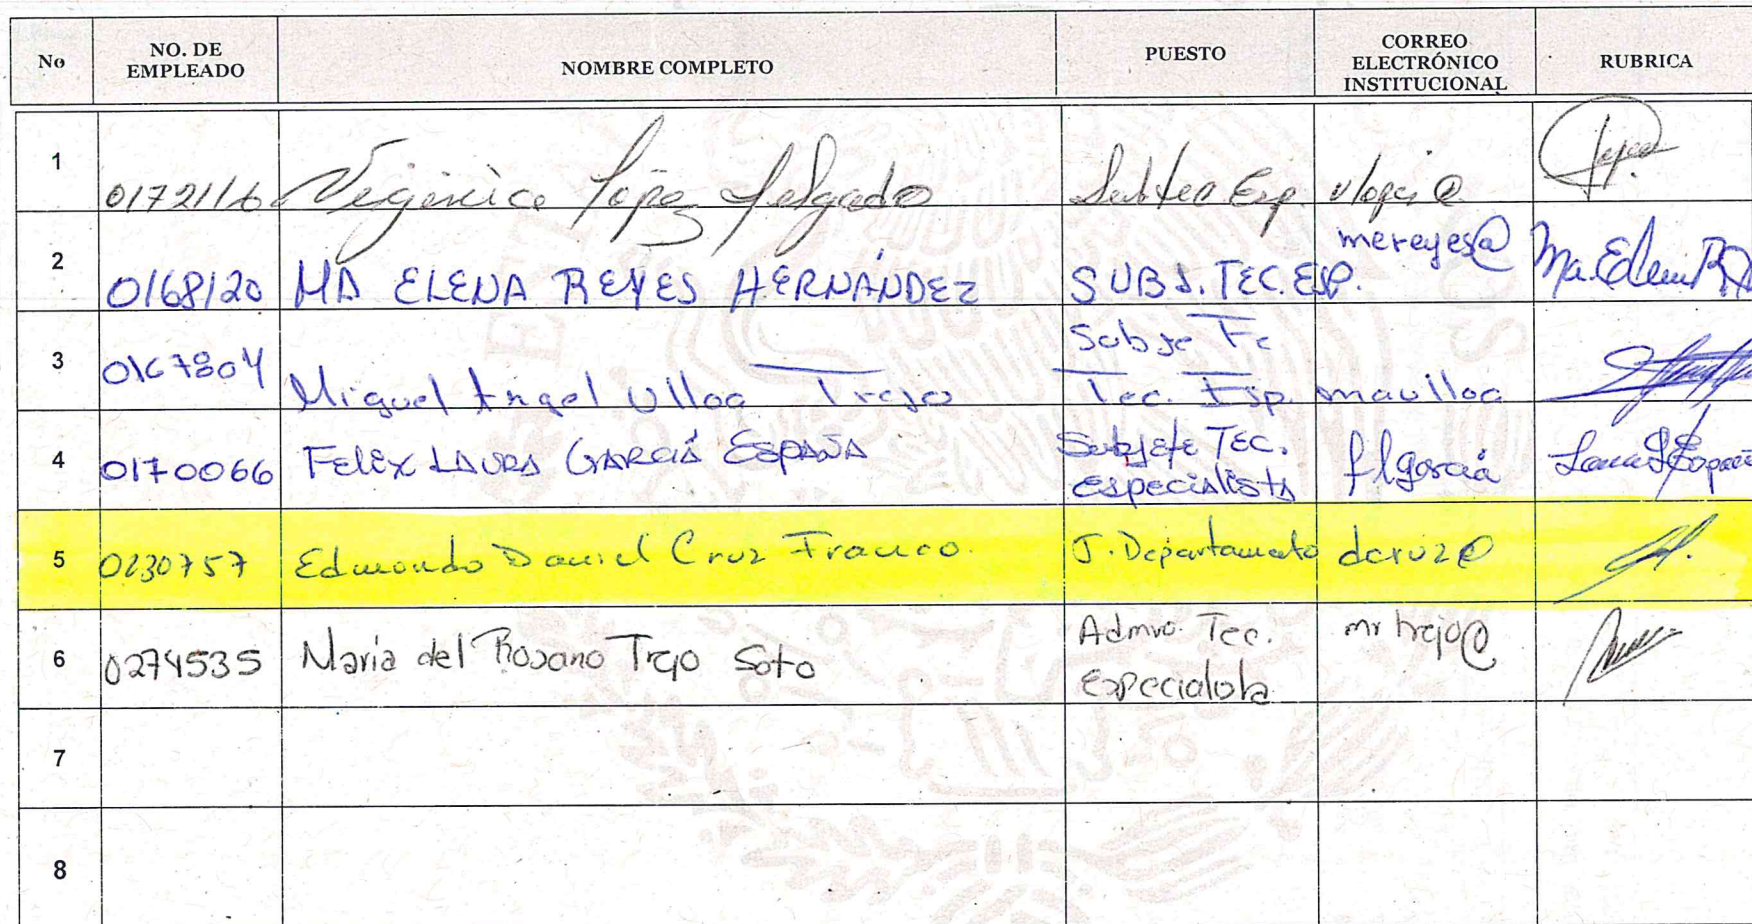 No NO. DE EMPLEADO NOMBRE COMPLETO PUESTO CORREO ELECTRÓNICO INSTITUCIONAL RUBRICA
1 0172116 Virginia López Delgado Sub tec Esp. vlopez@
2 0168120 MA ELENA REYES HERNÁNDEZ SUBJ. TEC. ESP. mereyes@ Ma. Elena
3 0167804 Miguel Angel Ulloa Trejo Subje Fe Tec. Esp. maulloa
4 0170066 Felix LAURA GARCÍA ESPAÑA Subjefe TEC. especialista flgarcía Laura
5 0230757 Edmundo Daniel Cruz Franco. J. Departamento dcruz@
6 0274535 María del Rosario Trejo Soto Admvo. Tec. Especialista mrtrejo@
7
8